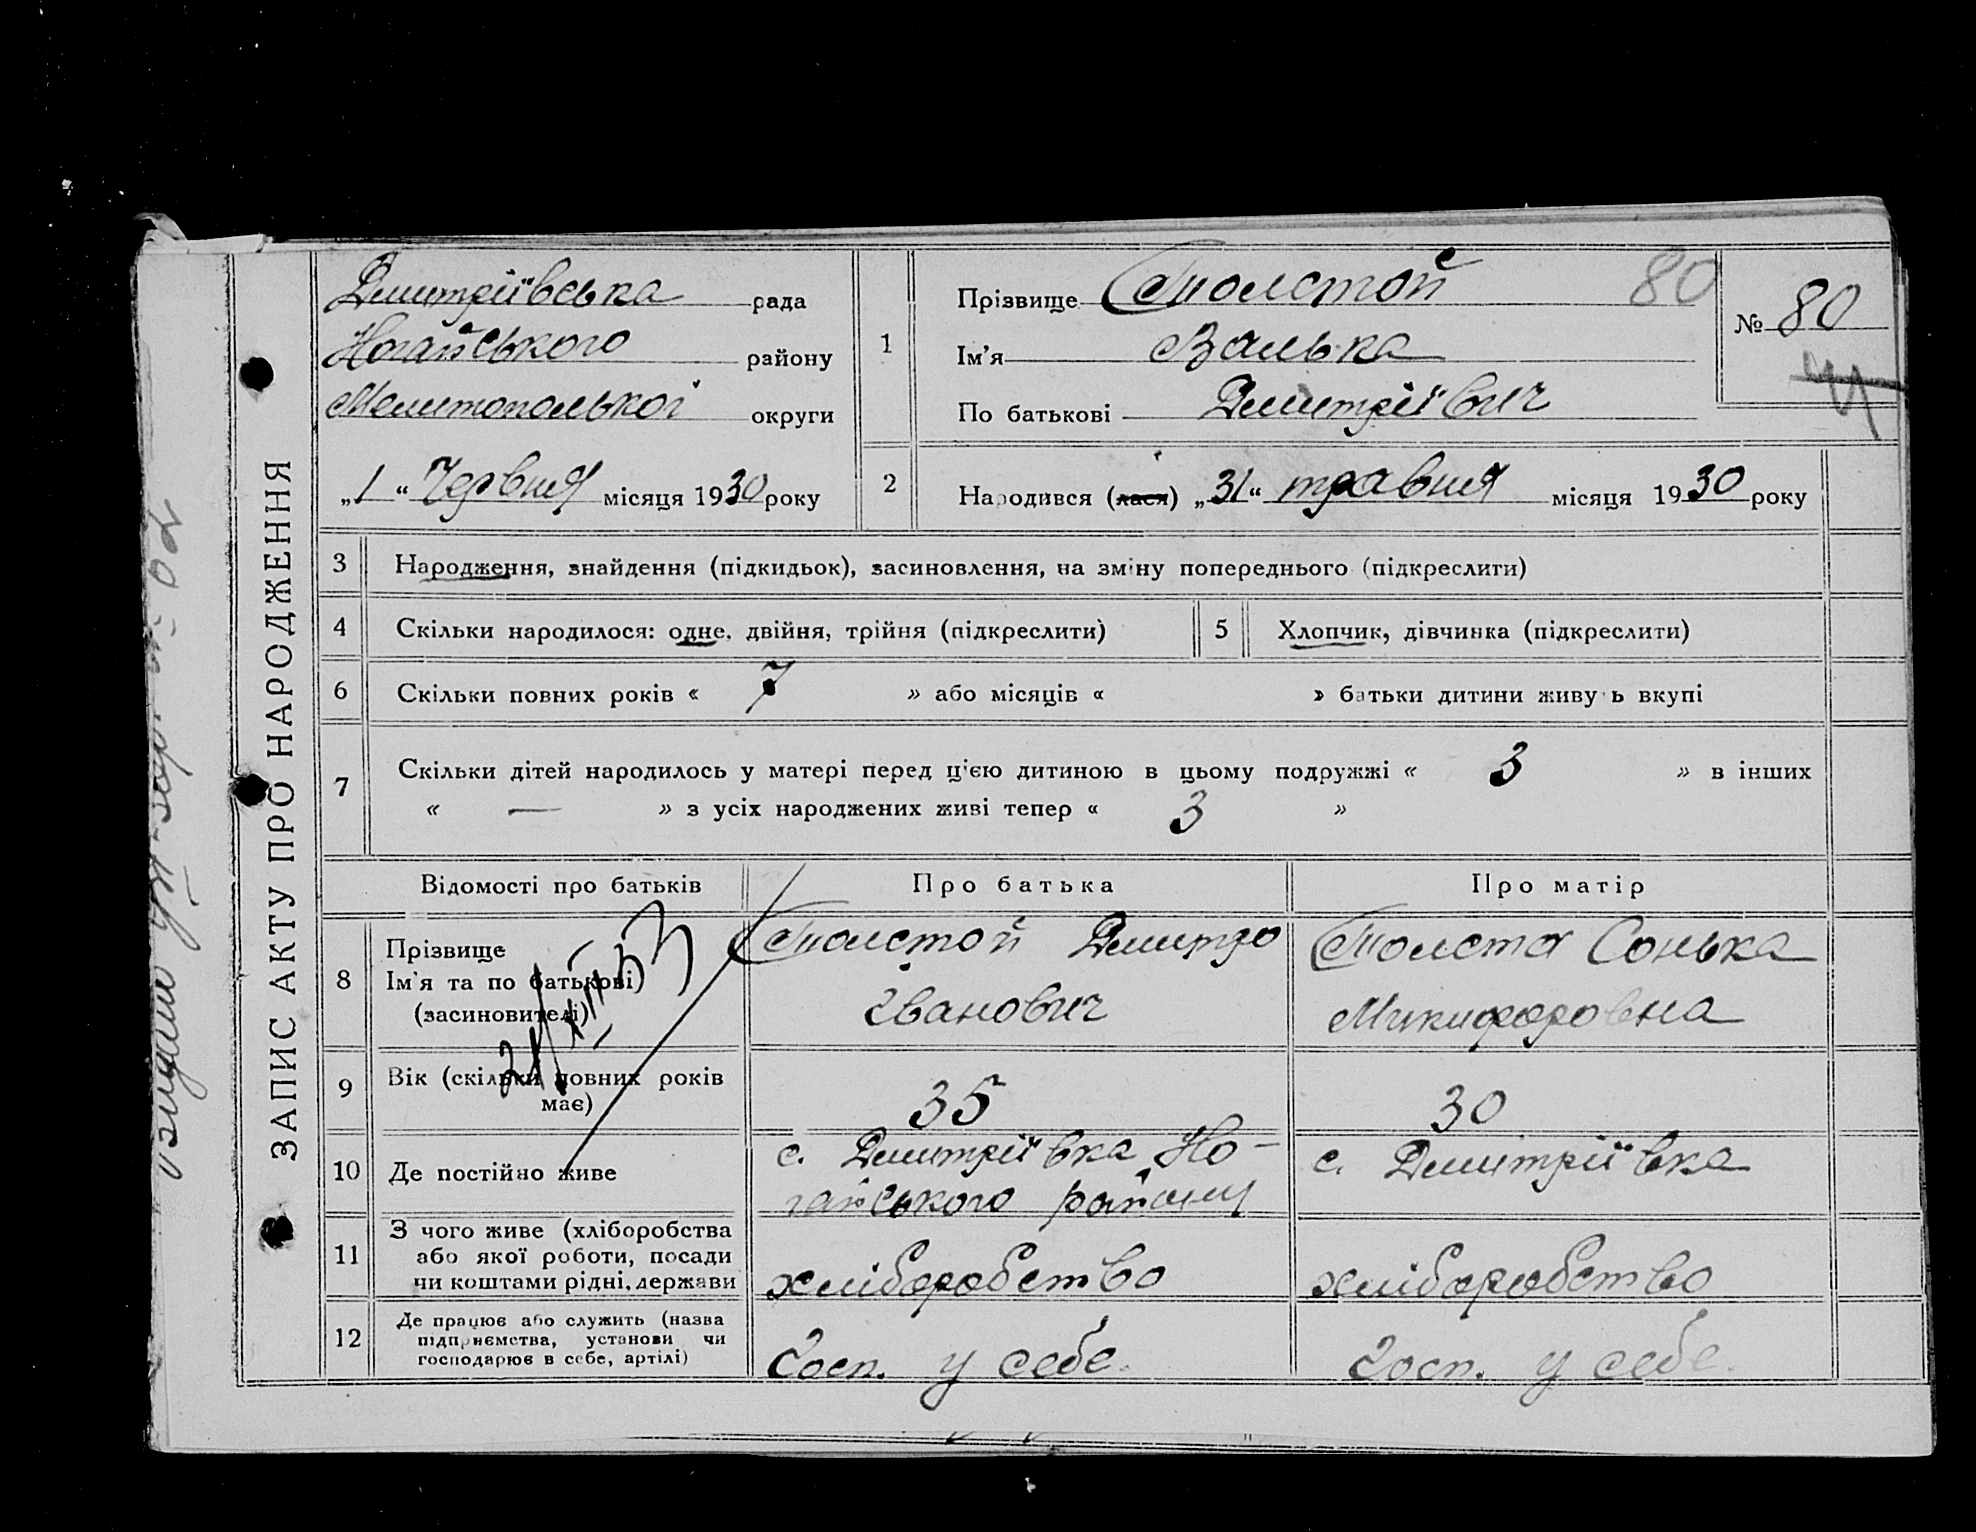 ЗАПИС АКТУ ПРО НАРОДЖЕННЯ
Дмитріївська рада
Ногайського району
Мелитополької округи
„1“ Червня місяця 1930 року
1
Прізвище Толстой 80
Ім'я Валька
По батькові Дмитріївич
№ 80
2
Народився (лася) „31“ травня місяця 1930 року
3 Народження, знайдення (підкидьок), засиновлення, на зміну попереднього (підкреслити)
4 Скільки народилося: одне, двійня, трійня (підкреслити) 5 Хлопчик, дівчинка (підкреслити)
6 Скільки повних років « 7 » або місяців « » батьки дитини живуть вкупі
7 Скільки дітей народилось у матері перед цією дитиною в цьому подружжі « 3 » в інших
« — » з усіх народжених живі тепер « 3 »
Відомості про батьків Про батька Про матір
8 Прізвище Ім'я та по батькові (засиновителі)
Толстой Дмитро
Іванович
Толста Сонька
Микифоровна
9 Вік (скільки повних років має) 35 30
10 Де постійно живе
с. Дмитріївка Но-
гайського району
с. Дмитріївка
11 З чого живе (хліборобства
або якої роботи, посади
чи коштами рідні, держави
хліборобство хліборобство
12 Де працює або служить (назва
підприємства, установи чи
господарює в себе, артілі)
Госп. у себе. Госп. у себе.